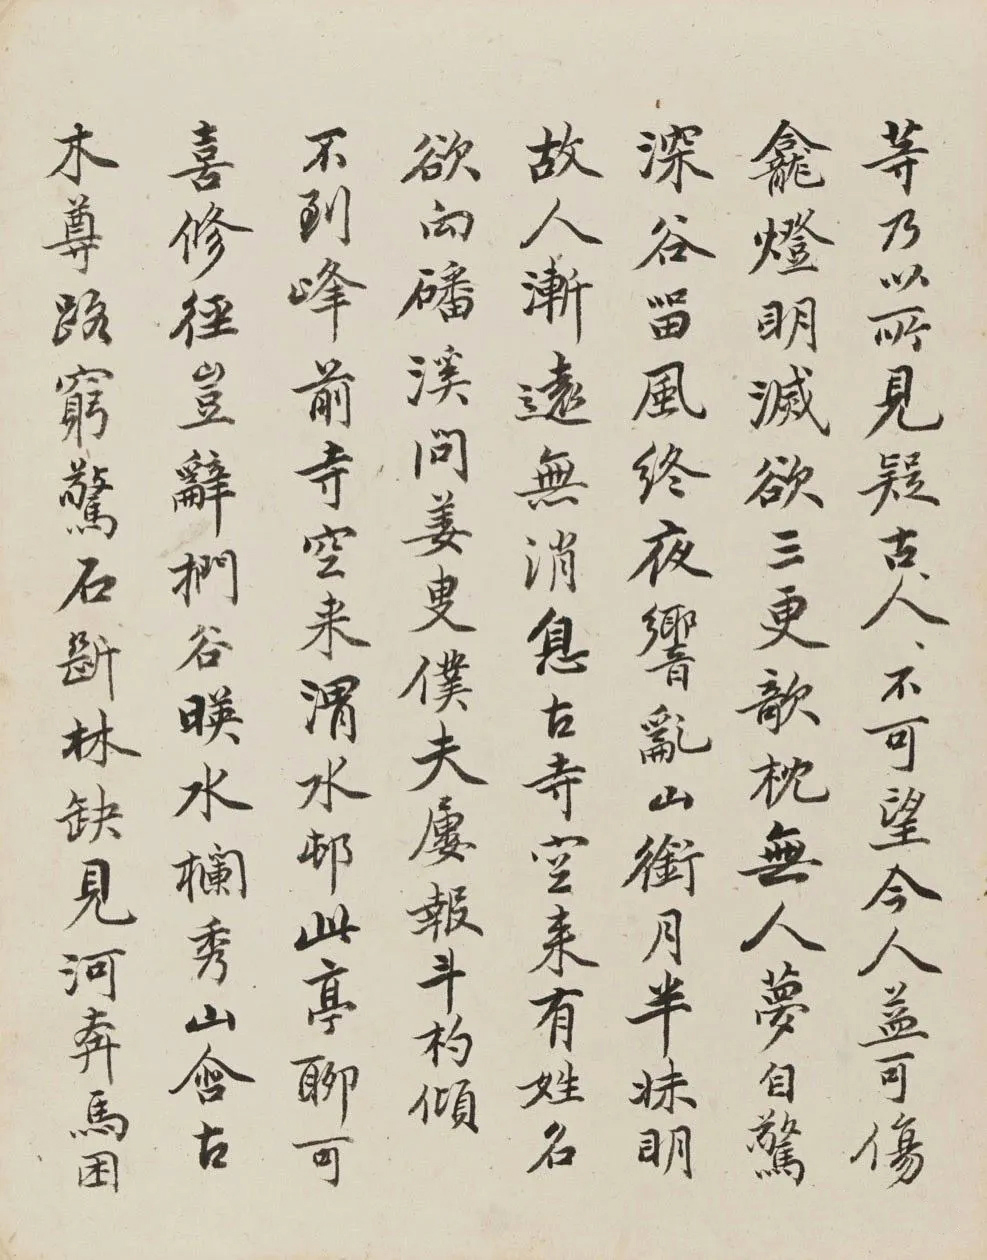 等乃以所見疑古人、不可望今人益可傷
龕燈明滅欲三更歌枕無人夢自驚
深谷留風終夜響亂山銜月半牀明
故人漸遠無消息古寺空来有姓名
欲向磻溪問姜叟僕夫屢報斗杓傾
不到峰前寺空来渭水邨此亭聊可
喜修徑豈辭捫谷暎水欄秀山含古
木尊路窮驚石斷林缺見河奔馬困